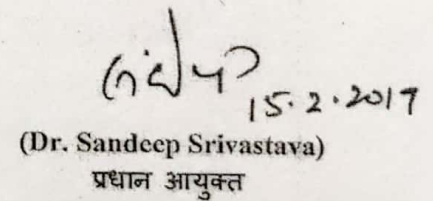 15.2.2017
(Dr. Sandeep Srivastava)
प्रधान आयुक्त